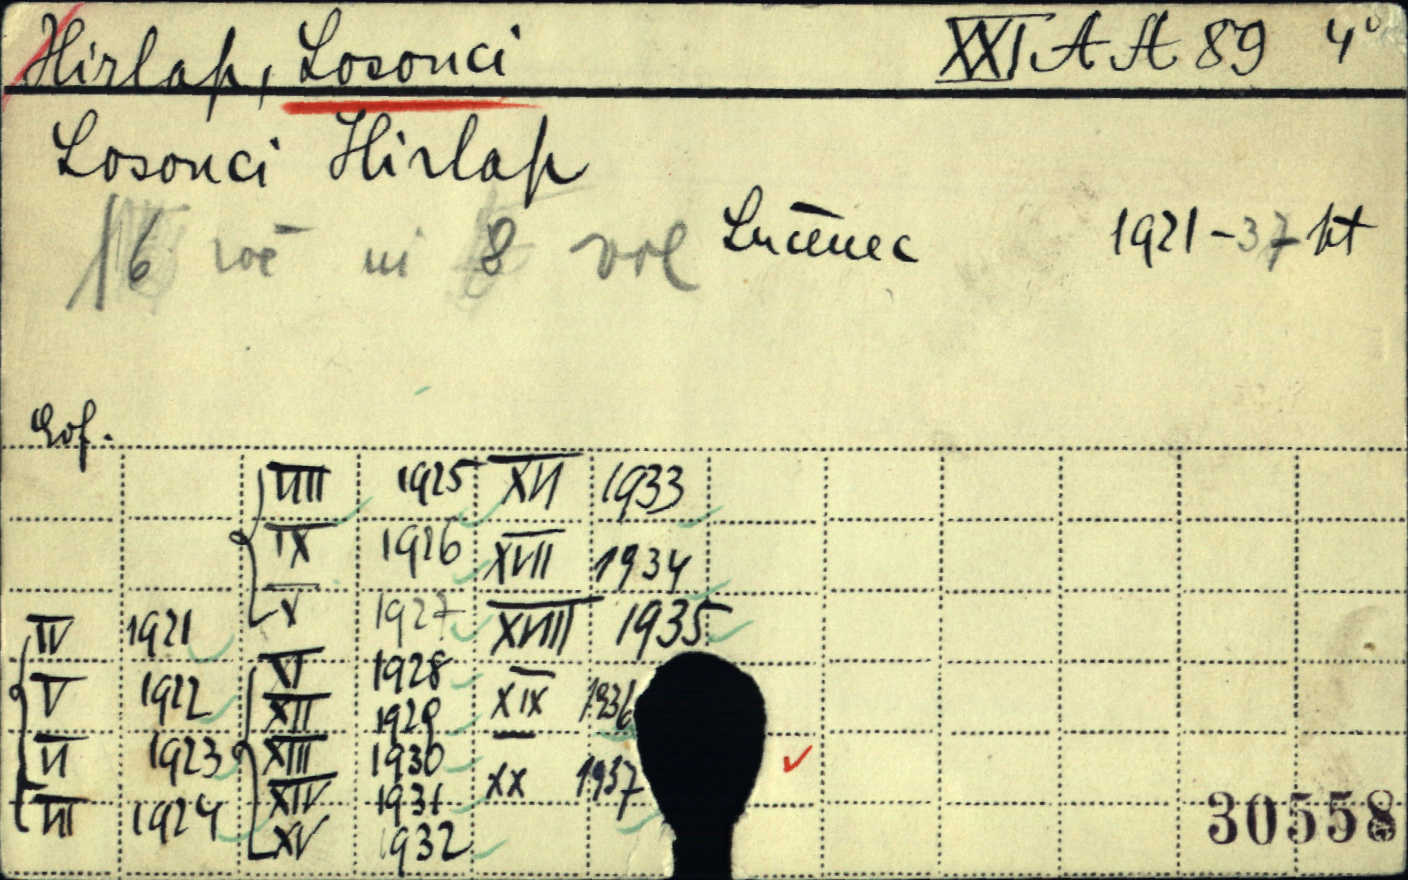 Hirlap, Losonci XXI A A 89 4°
Losonci Hirlap
16 roč in 8 vol Lučenec 1921-37 kt
VIII 1925 XVI 1933
IX 1926 XVII 1934
X 1927 XVIII 1935
IV 1921
XI 1928
V 1922 XII 1929 XIX 1936
VI 1923 XIII 1930 XX 1937
VII 1924 XIV 1931
XV 1932
30558